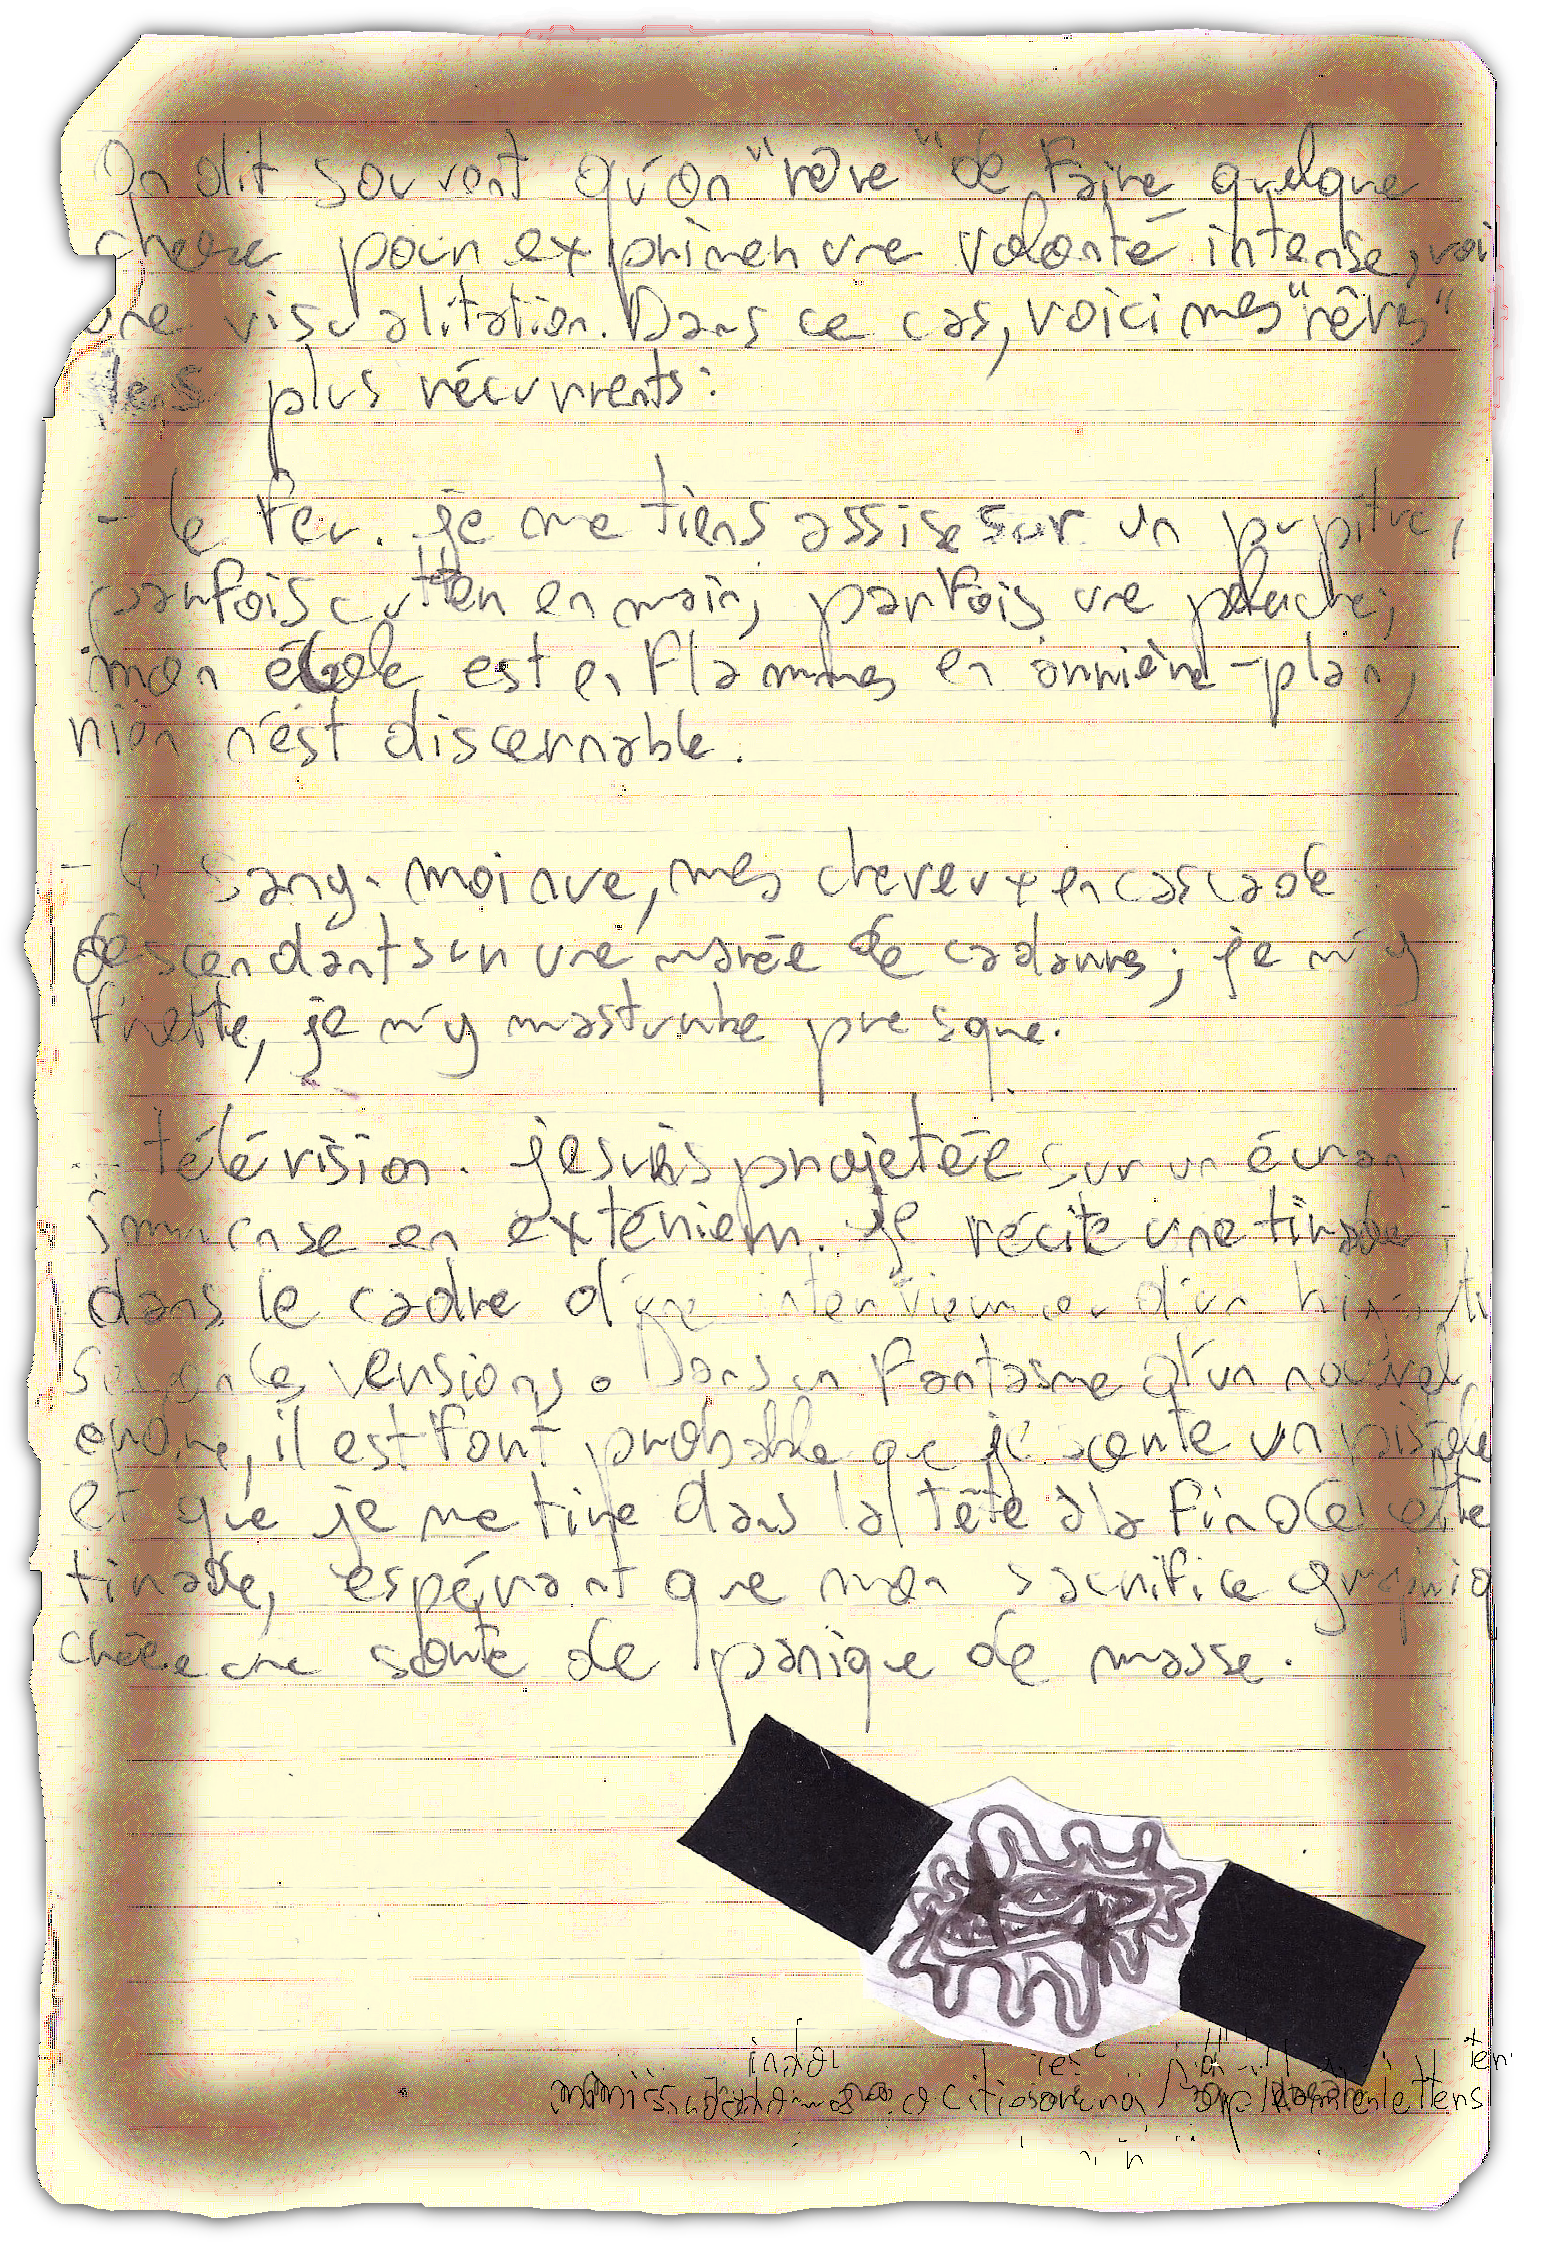 On dit souvent qu'on "rêve" de faire quelque
chose pour exprimer une volonté intense, voi
une visualitation. Dans ce cas, voici mes "rêves"
les plus récurrents:
- le feu. je me tiens assise sur un pupitre,
parfois cutter en main, parfois une peluche;
mon école est en flammes en arrière-plan,
rien n'est discernable.
- le sang. moi nue, mes cheveux en cascade
descendant sur une marée de cadavres; je m'y
frotte, je m'y masturbe presque.
- télévision. je suis projetée sur un écran
immense en extérieur. je récite une tirade
dans le cadre d'une interview ou d'un
selon les versions. Dans un fantasme d'un nouvel
ordre, il est fort probable que je sorte un pistolet
et que je me tire dans la tête à la fin de cette
tirade, espérant que mon sacrifice
crée une sorte de panique de masse.